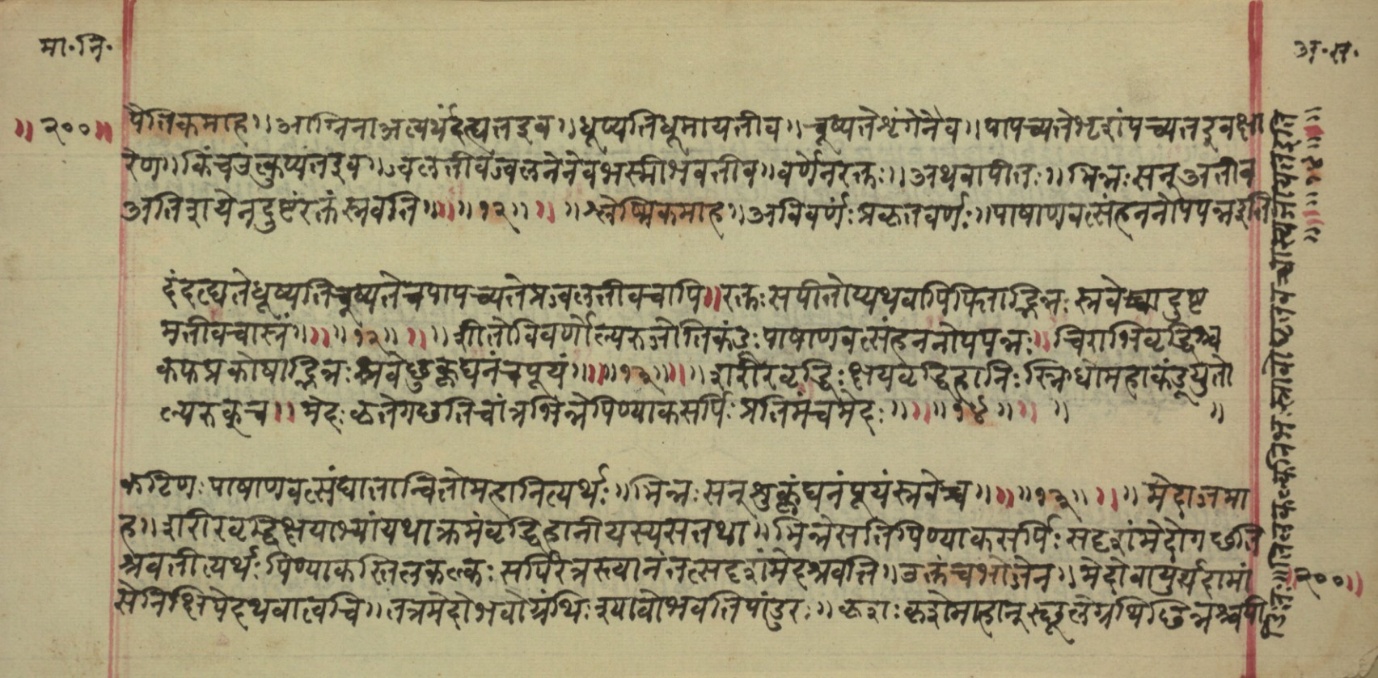 मा॰ नि॰
अ॰ ग्र॰
॥ २०० ॥
पैतिकमाह ॥ आग्निनाअत्यर्थंदह्यतइव ॥ धूप्यतिधूमायतीव ॥ चूष्यतेशृंगेनैव ॥ पापच्यतेभृशंपच्यतइवक्षा
रेण ॥ किंच ज्वलतीवज्वलनेनेवभस्मीभवतीव ॥ वर्णेनरक्तः ॥ अथवापीतः ॥ भिन्नःसन्अतीव
अतिशयेनदुष्टंरक्तंस्रवति ॥ ॥ १२ ॥ ॥ श्लेष्मिकमाह ॥ अविवर्णःप्रकृतवर्णः ॥ पाषाणवत्संहननोपपन्नइति
दंदह्यतेधूप्यतिचूष्यतेचपापच्यतेप्रज्वलतीवचापि ॥ रक्तःसपीतोप्यथवापिपित्ताद्भिन्नःस्रवेच्चादुष्ट
मतीवचास्रं ॥ ॥ १२ ॥ ॥ शीतोविवर्णोल्परुजोतिकंडुःपाषाणवत्संहननोपपन्नः ॥ चिराभिवृद्धिश्च
कफप्रकोषाद्भिन्नःस्रवेछुक्लघनंचपूयं ॥ ॥ १३ ॥ ॥ शरीरवृद्धिःक्षयवृद्धिहानिःस्निग्धोमहाकंडूयुतो
ल्परुक्च ॥ मेदःकृतेगछतिचांत्रभिन्नेपिण्याकसर्पिःप्रतिमंचमेदः ॥ ॥ १४ ॥ ॥ ॥ ॥
कठिणःपाषाणवत्संघातान्वितोमहानित्यर्थः ॥ भिन्नःसन्शुक्लंघनंपूयंस्रवेच्च ॥ ॥ १३ ॥ ॥ मेदोजमा
ह ॥ शरीरवृद्धिक्षयाभ्यांयथाक्रमंवृद्धिहानीयस्यसतथा ॥ भिन्नेसतिपिण्याकसर्पिःसदृशंमेदोगछति
श्रवतीत्यर्थःपिण्याकस्तिलकल्कःसर्पिरत्रस्त्यानंतत्सदृशंमेदश्रवति ॥ उक्तंचभोजेन ॥ मेदोवायुर्यदामां
सेनिक्षिपेदथवात्वचि ॥ तत्रमेदोभवोग्रंथिःश्यावोभवतिपांडुरः ॥ कृशःकृशेमहान्स्थूलेग्रथिछिन्नश्चपी
॥ २०० ॥